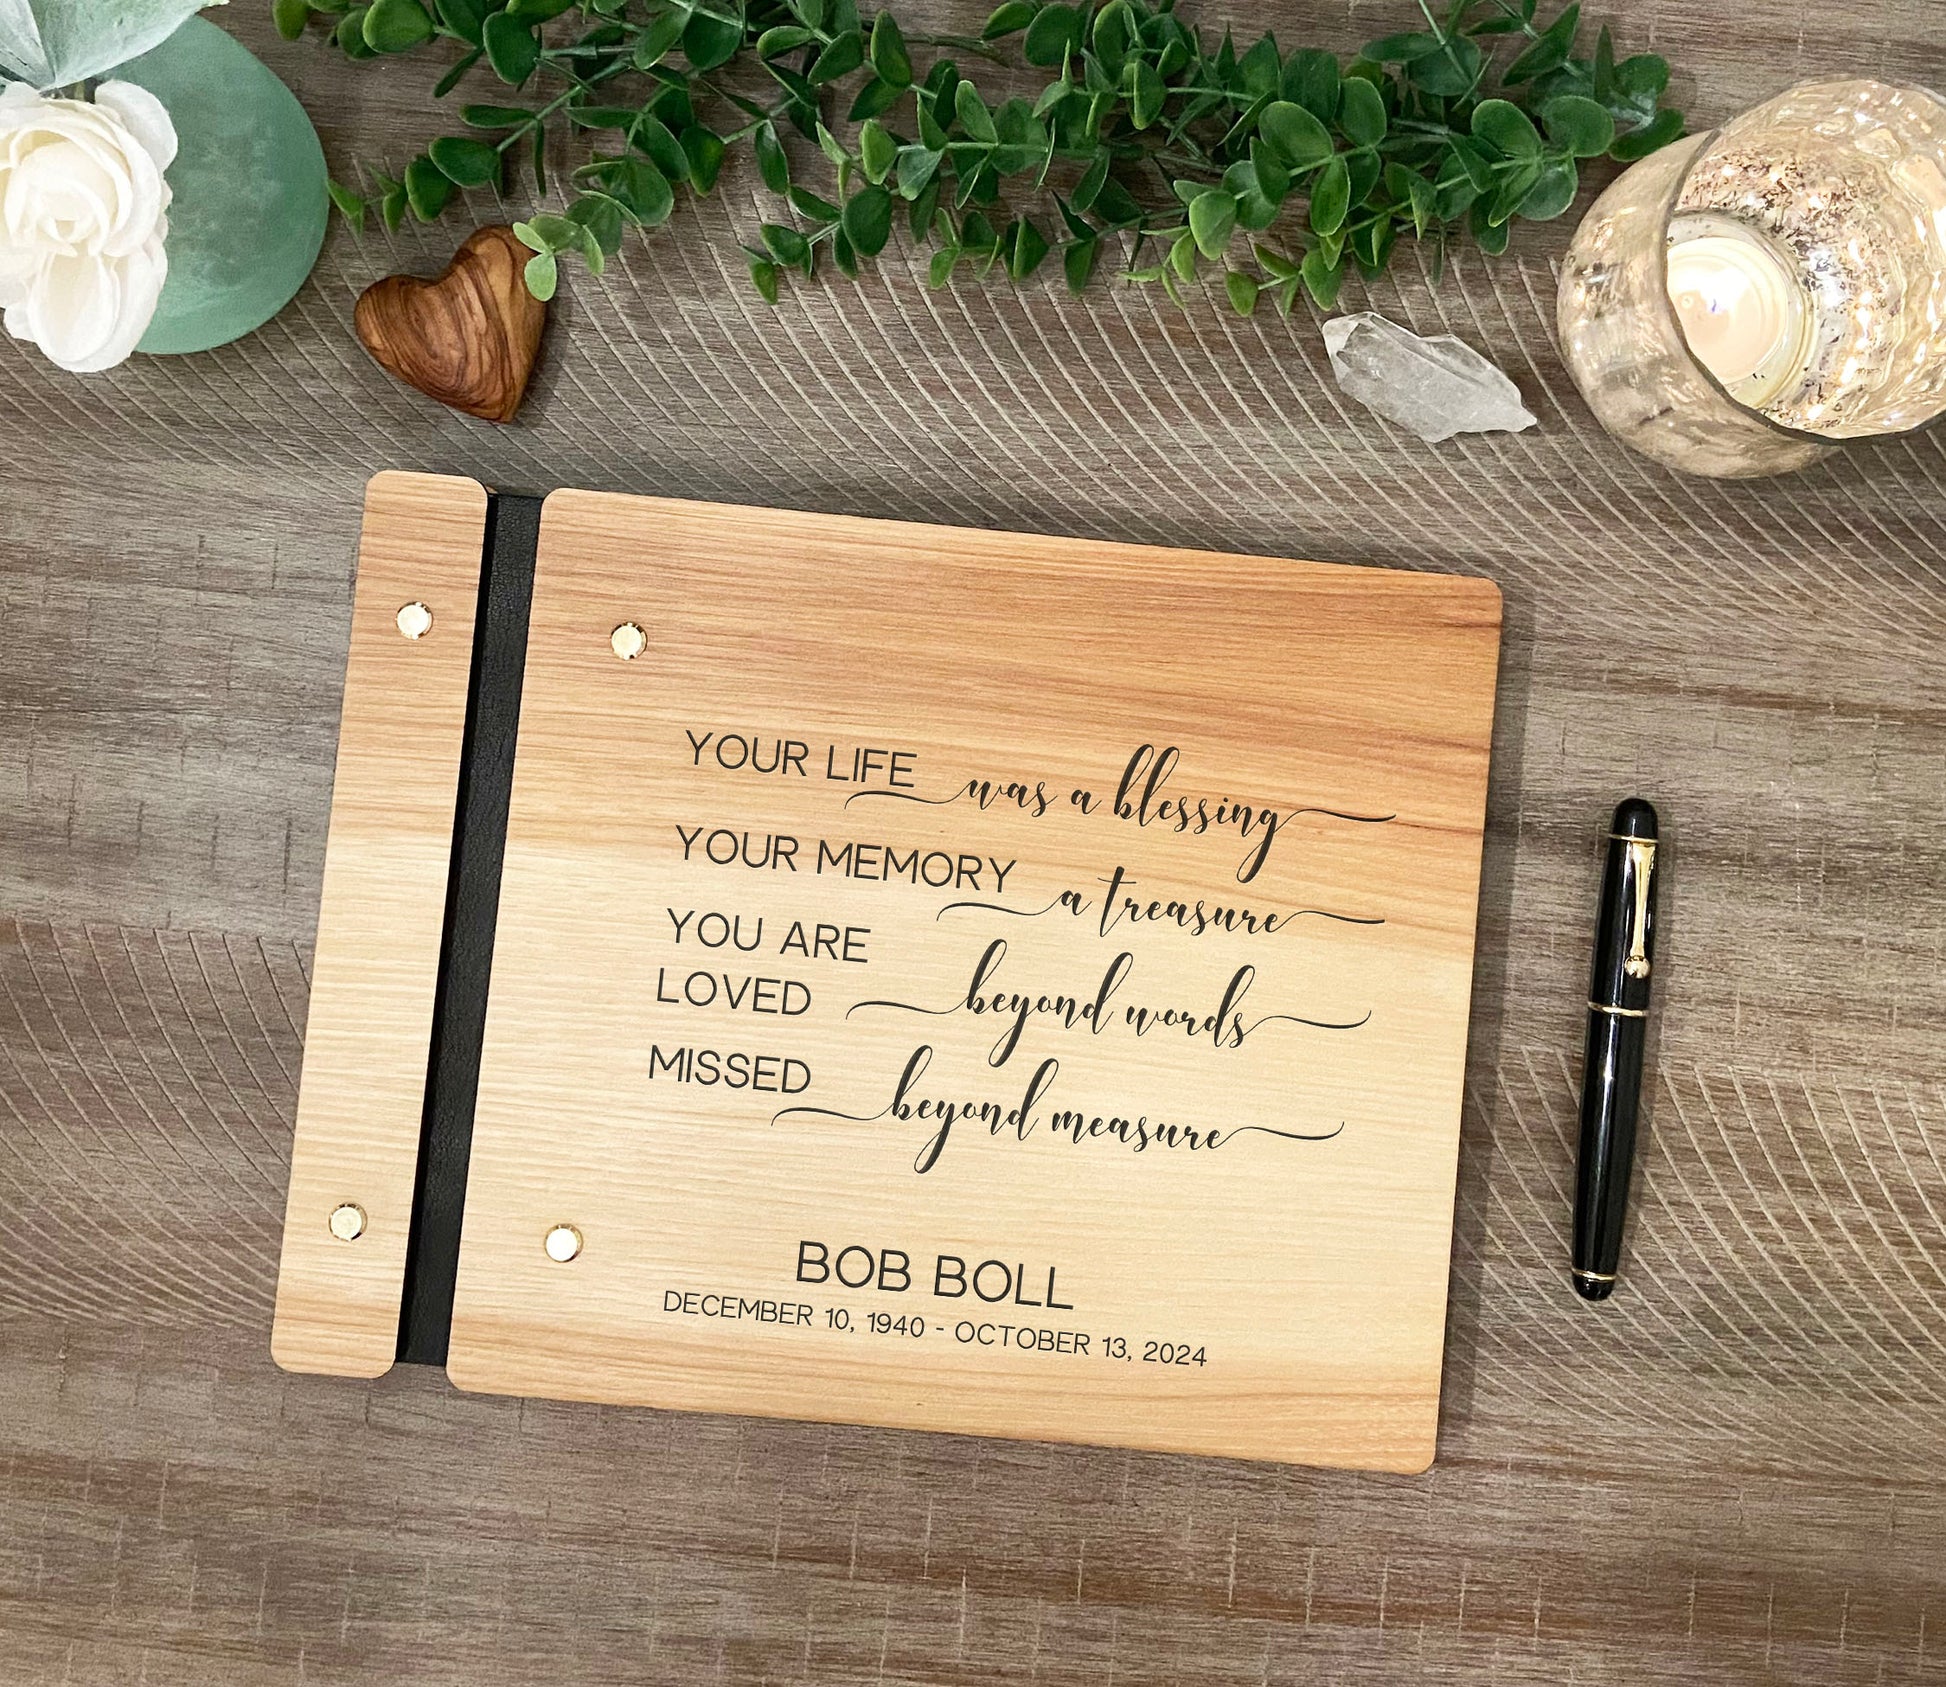 YOUR LIFE was a blessing
YOUR MEMORY a treasure
YOU ARE
LOVED beyond words
MISSED beyond measure
BOB BOLL
DECEMBER 10, 1940 - OCTOBER 13, 2024